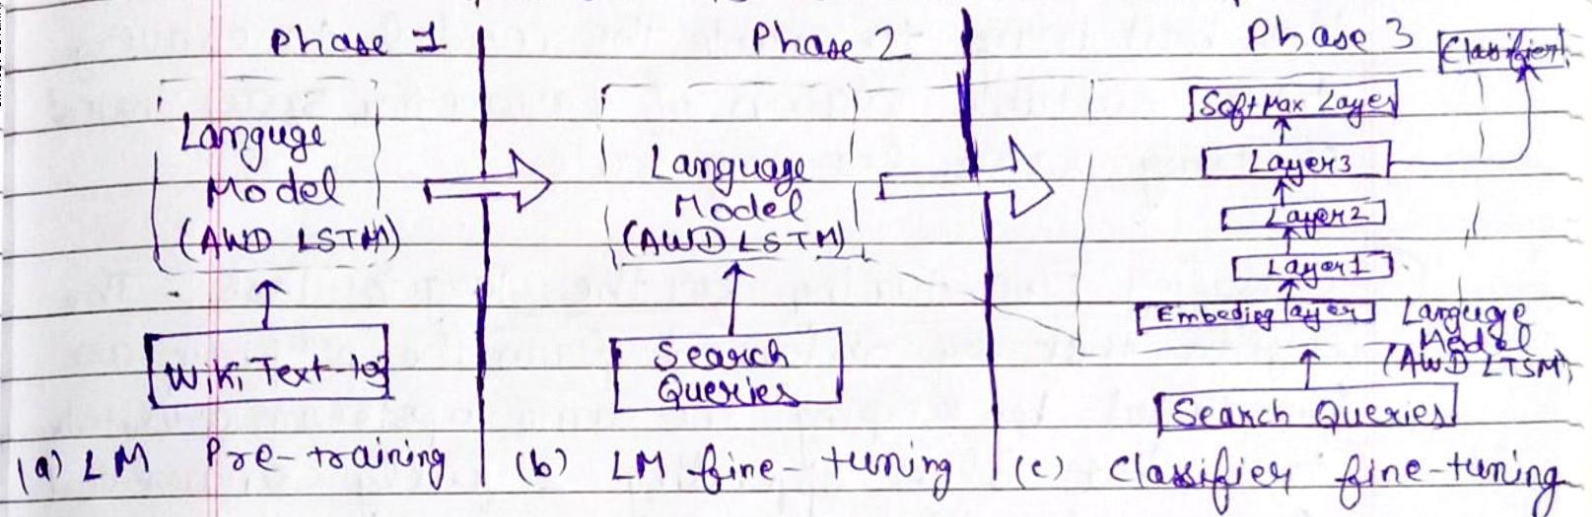 Phase 1
Languge
Model
(AWD LSTM)
Wiki Text-103
(a) LM Pre-training
Phase 2
Language
Model
(AWD LSTM)
Search
Queries
(b) LM fine-tuning
Phase 3
Classifier
Softmax Layer
Layer3
Layer2
Layer1
Embeding layer
Language
Model
(AWD LTSM)
Search Queries
(c) Classifier fine-tuning